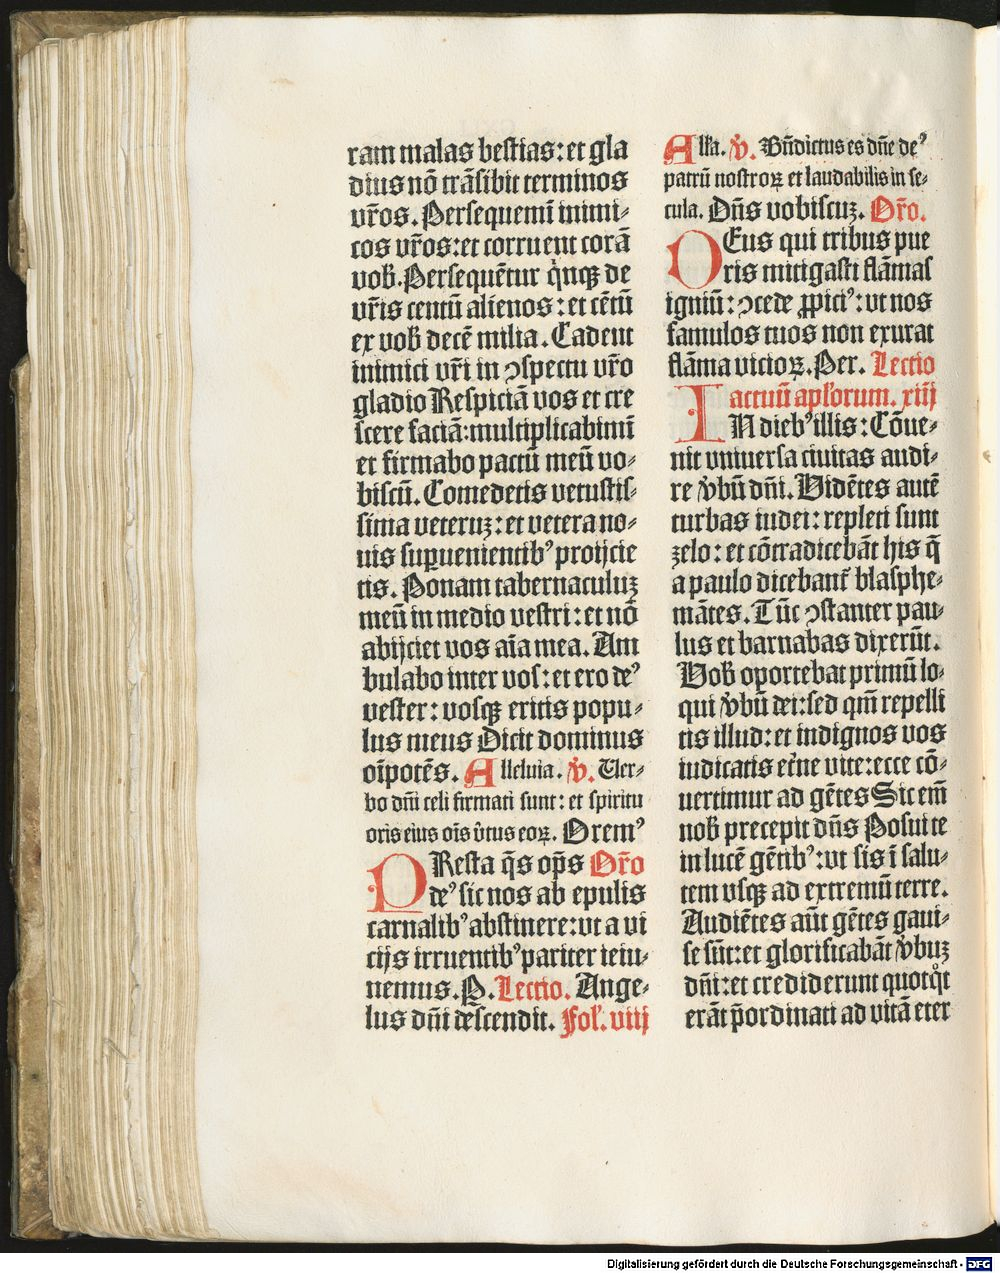 ram malas bestias: et gla
dius nõ trãsibit terminos
vr̃os. Persequemĩ inimi-
cos vr̃os: et corruent corã
vob̃. Persequẽtur q̇nqꝫ de
vr̃is centũ alienos: et cẽtũ
ex vob̃ decẽ milia. Cadent
inimici vr̃i in ꝯspectu vr̃o
gladio Respiciã vos et cre
scere faciã: multiplicabimĩ
et firmabo pactũ meũ vo-
biscũ. Comedetis vetustis-
sima veteruꝫ: et vetera no-
uis suꝑuenientibꝰ proijcie
tis. Ponam tabernaculuꝫ
meũ in medio vestri: et nõ
abijciet vos aĩa mea. Am
bulabo inter vos: et ero deꝰ
vester: vosqꝫ eritis popu-
lus meus Dicit dominus
oĩpotẽs. Alleluia. ℣. Uer-
bo dñi celi firmati sunt: et spiritu
oris eius oĩs v̑tus eoꝝ. Oremꝰ
PResta q̃s op̃s Or̃o
deꝰ sic nos ab epulis
carnalibꝰ abstinere: vt a vi
cijs irruentibꝰ pariter ieiu-
nemus. P. Lectio. Ange-
lus dñi descendit. Fol. viij
All'a. ℣. Bñdictus es dñe deꝰ
patrũ nostroꝝ et laudabilis in se-
cula. Dñs vobiscuꝫ. Or̃o.
DEus qui tribus pue
ris mitigasti flãmas
igniũ: ꝯcede ꝓpiciꝰ: vt nos
famulos tuos non exurat
flãma vicioꝝ. Per. Lectio
actuũ apl'orum. xiij
IN diebꝰ illis: Cõue-
nit vniuersa ciuitas audi-
re v̑bũ dñi. Vidẽtes autẽ
turbas iudei: repleti sunt
zelo: et cõtradicebãt his q̃
a paulo dicebant̃ blasphe-
mãtes. Tũc ꝯstanter pau-
lus et barnabas dixerũt.
Vob̃ oportebat primũ lo-
qui v̑bũ dei: sed qm̃ repelli
tis illud: et indignos vos
iudicatis et̃ne vite: ecce cõ-
uertimur ad gẽtes Sic em̃
nob̃ precepit dñs Posui te
in lucẽ gẽtibꝰ: vt sis ĩ salu-
tem vsqꝫ ad extremũ terre.
Audiẽtes aũt gẽtes gaui-
se sũt: et glorificabãt v̑buꝫ
dñi: et crediderunt quotqͦt
erãt p̃ordinati ad vitã eter
Digitalisierung gefördert durch die Deutsche Forschungsgemeinschaft - DFG